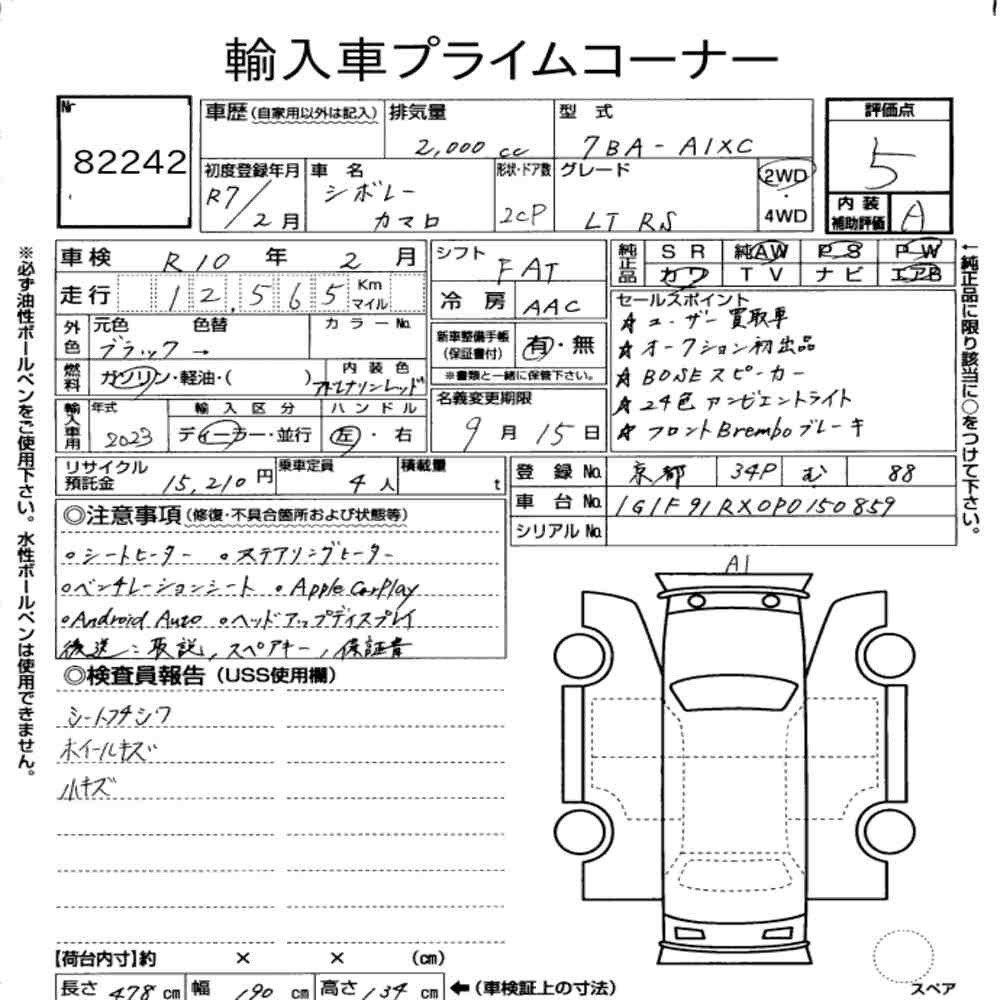 輸入車プライムコーナー
Nr
82242
車歴(自家用以外は記入)
排気量
2,000 cc
型式
7BA-A1XC
評価点
5
初度登録年月
R7/2月
車名
シボレー
カマロ
形状・ドア数
2CP
グレード
LT RS
2WD
・
4WD
内装
補助評価
A
車検 R10年 2月
走行 12,565 Km
マイル
シフト
FAT
冷房 AAC
純正品
SR 純AW PS PW
カワ TV ナビ エアB
外色
元色 色替
ブラック →
カラーNo.
新車整備手帳
(保証書付)
有・無
※書類と一緒に保管下さい。
セールスポイント
☆ユーザー買取車
☆オークション初出品
☆BOSEスピーカー
☆24色アンビエントライト
☆フロントBremboブレーキ
燃料
ガソリン・軽油・( )
内装色
アドレナリンレッド
輸入車用
年式
2023
輸入区分
ディーラー・並行
ハンドル
左・右
名義変更期限
9月15日
リサイクル
預託金
15,210円
乗車定員
4人
積載量
t
登録No. 京都 34P む 88
車台No. 1G1F91RX0P0150859
シリアルNo.
◎注意事項(修復・不具合箇所および状態等)
○シートヒーター ○ステアリングヒーター
○ベンチレーションシート ○Apple CarPlay
○Android Auto ○ヘッドアップディスプレイ
後送:取説,スペアキー,保証書
◎検査員報告(USS使用欄)
シートフチシワ
ホイールキズ
小キズ
A1
【荷台内寸】約 × × (cm)
長さ 478 cm 幅 190 cm 高さ 134 cm ←(車検証上の寸法)
スペア
※必ず油性ボールペンをご使用下さい。水性ボールペンは使用できません。
←純正品に限り該当に○をつけて下さい。